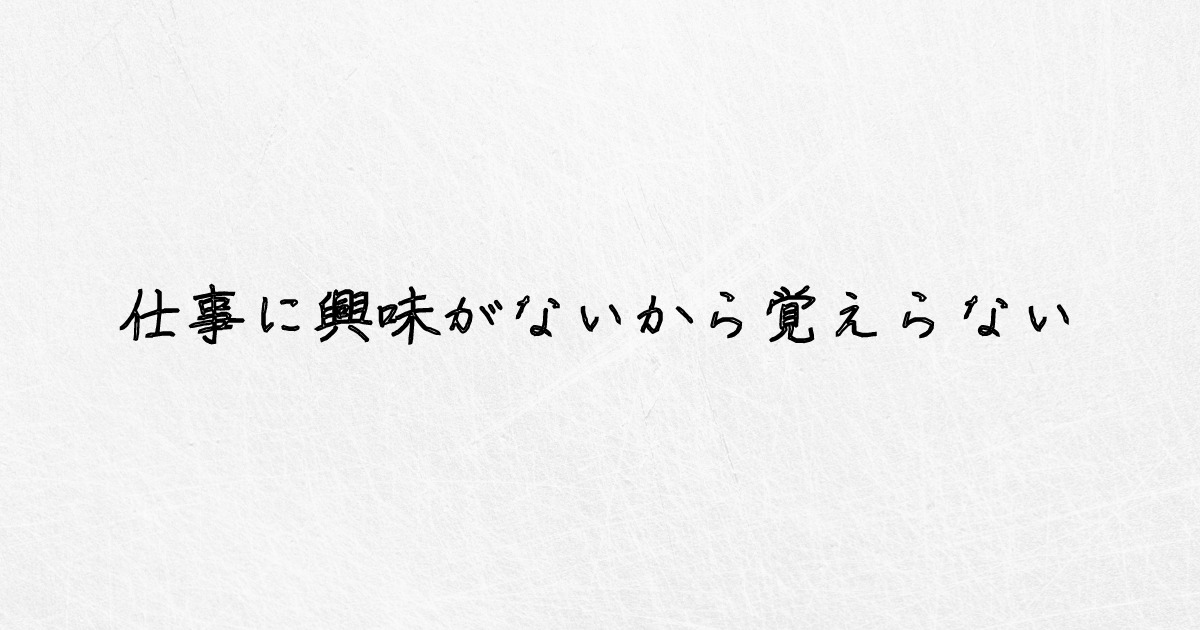 仕事に興味がないから覚えらない